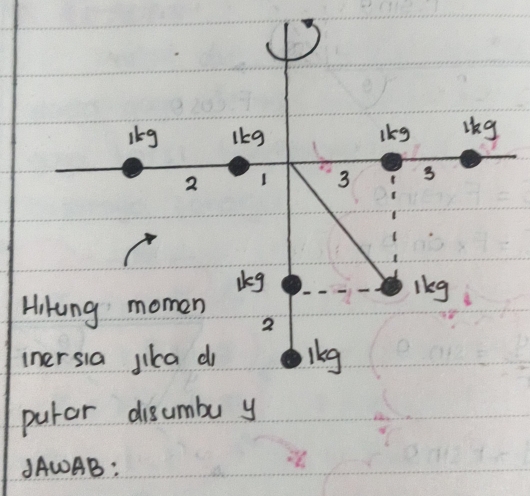 1kg 1kg 1kg 1kg
2 1 3 3
1kg 1kg
2
1kg
Hitung momen
inersia jika di
putar disumbu y
JAWAB: